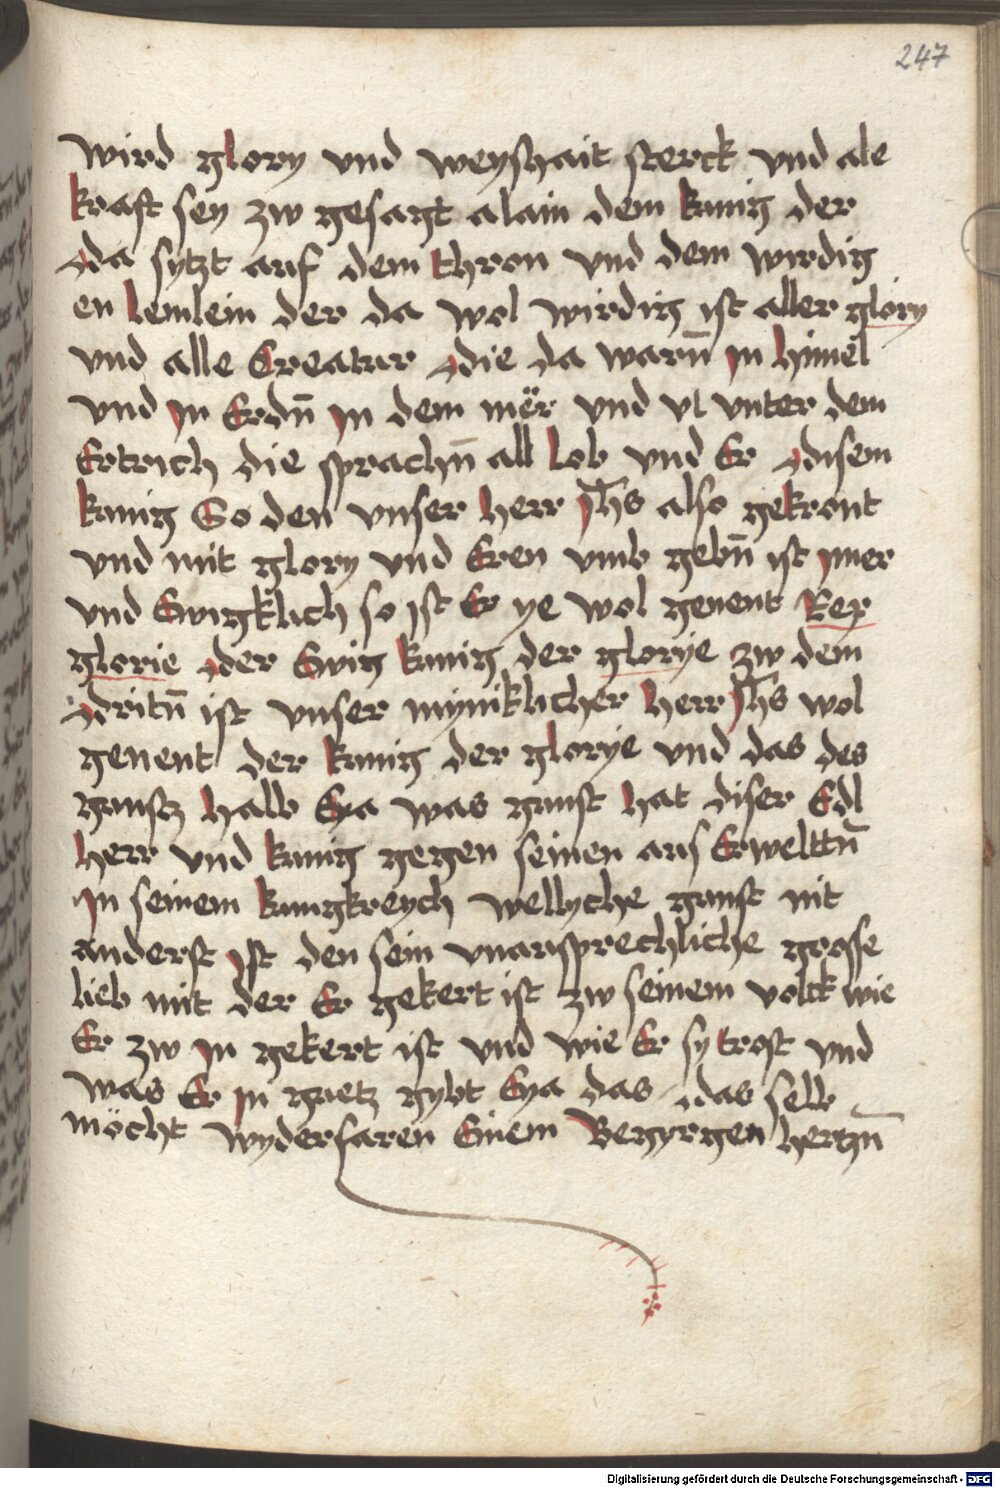 247
wird glory vnd weyshait sterck vnd ale
kraft sey zw gesagt alain dem kunig der
da sytzt auf dem thron vnd dem wirdig
en lemlein der da wol wirdig ist aller glory
vnd alle Creatur die da warn̄ jn himel
vnd jn Erdn̄ jn dem mër vnd vnter dem
Ertrich die sprachn̄ all lob vnd Er disem
kunig So den vnser herr jhs also gekront
vnd mit glory vnd Eren vmb gebn̄ ist jmer
vnd Ewigklich so ist Er ye wol genent Rex
glorie der Ewig kunig der glorye zw dem
dritn̄ ist vnser myniklicher herr jhs wol
genent der kunig der glorye vnd das des
gunstz halb Eya was gunst hat diser Edl
herr vnd kunig gegen seinen aus Erweltn̄
jn seinem kungkreych wellyche gunst nit
anderst jst den sein vnausprechliche grosse
lieb mit der Er gekert ist zw seinem volck wie
Er zw jn gekert ist vnd wie Er sy trost vnd
was Er jn guetz gybt Eya das das selb
möcht wyderfaren Einem Begyrgen hertzn̄
Digitalisierung gefördert durch die Deutsche Forschungsgemeinschaft - DFG